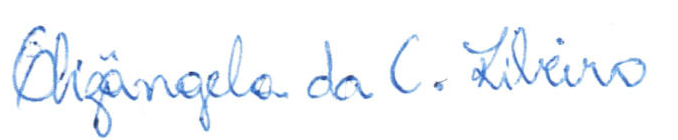 Elizângela da C. Ribeiro